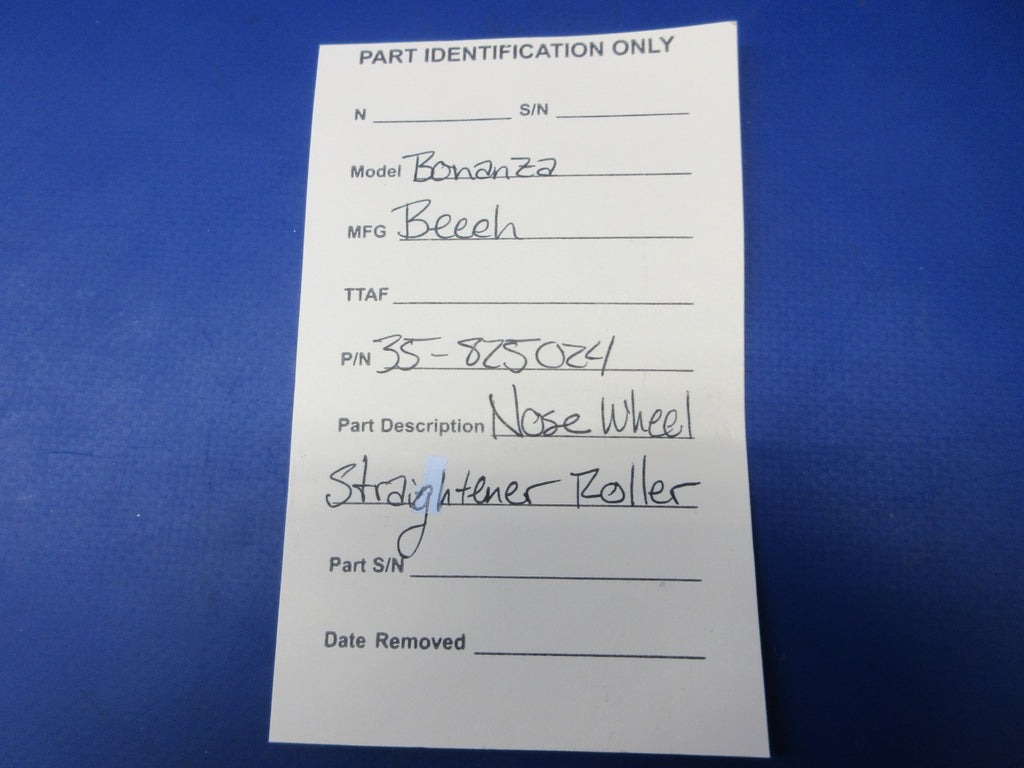 PART IDENTIFICATION ONLY
N S/N
Model Bonanza
MFG Beech
TTAF
P/N 35-825024
Part Description Nose Wheel
Straightener Roller
Part S/N
Date Removed